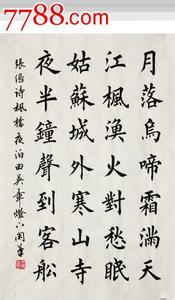 7788.com
月落烏啼霜滿天
江楓漁火對愁眠
姑蘇城外寒山寺
夜半鐘聲到客船
張繼詩楓橋夜泊田英章燈下